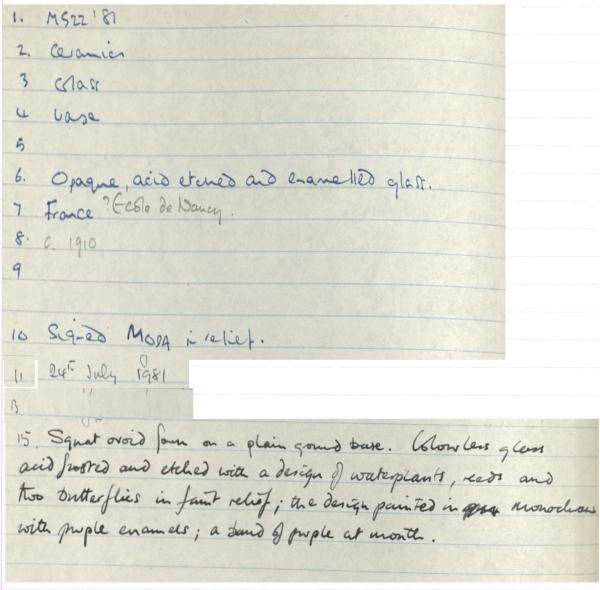 1. MS22 '81
2. Ceramics
3 Glass
4 Vase
5
6. Opaque, acid etched and enamelled glass.
7 France ? Ecole de Nancy.
8. c. 1910
9
10 Signed MODA in relief.
11 24th July 1981
13
15. Squat ovoid form on a plain ground base. Colourless glass
acid frosted and etched with a design of waterplants, reeds and
two butterflies in faint relief; the design painted in monochrome
with purple enamels; a band of purple at mouth.